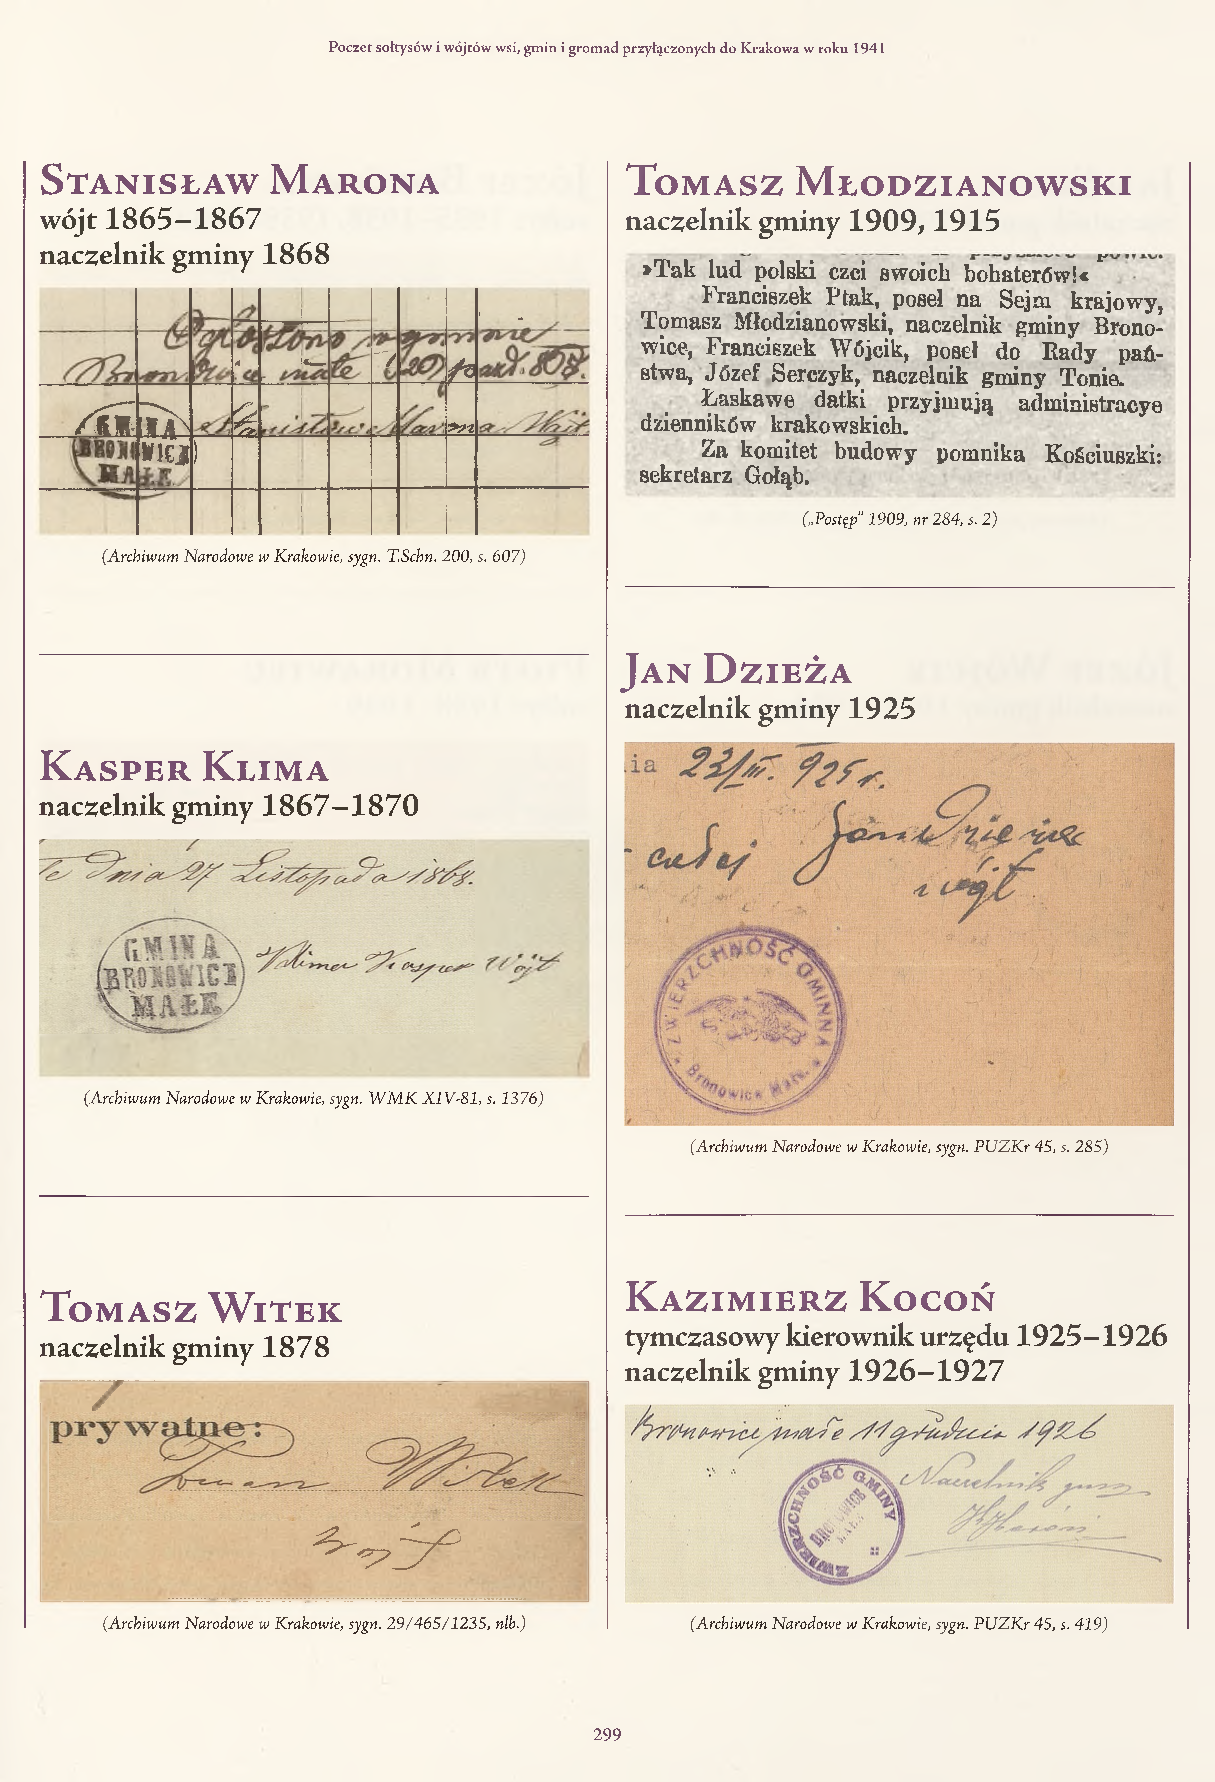 Poczet sołtysów i wójtów wsi, gmin i gromad przyłączonych do Krakowa w roku 1941
Stanisław Marona
wójt 1865–1867
naczelnik gminy 1868
Ogłoszono w gminie
Bronowice małe (20) 
GMINA
BRONOWICE
MAŁE
Stanisław Marona Wójt
(Archiwum Narodowe w Krakowie, sygn. T.Schn. 200, s. 607)
Kasper Klima
naczelnik gminy 1867–1870
Dnia 27 Listopada 1868.
GMINA
BRONOWICE
MAŁE
Klima Kasper Wójt
(Archiwum Narodowe w Krakowie, sygn. WMK XIV-81, s. 1376)
Tomasz Witek
naczelnik gminy 1878
prywatne:
Witek
(Archiwum Narodowe w Krakowie, sygn. 29/465/1235, nlb.)
Tomasz Młodzianowski
naczelnik gminy 1909, 1915
»Tak lud polski czci swoich bohaterów!«
Franciszek Ptak, poseł na Sejm krajowy,
Tomasz Młodzianowski, naczelnik gminy Brono-
wice, Franciszek Wójcik, poseł do Rady pań-
stwa, Józef Serczyk, naczelnik gminy Tonie.
Łaskawe datki przyjmują administracye
dzienników krakowskich.
Za komitet budowy pomnika Kościuszki:
sekretarz Gołąb.
(„Postęp” 1909, nr 284, s. 2)
Jan Dzieża
naczelnik gminy 1925
ia 23/III. 925 r.
Jan
wójt
ZWIERZCHNOŚĆ GMINNA
Bronowice Małe
(Archiwum Narodowe w Krakowie, sygn. PUZKr 45, s. 285)
Kazimierz Kocoń
tymczasowy kierownik urzędu 1925–1926
naczelnik gminy 1926–1927
Bronowice małe 11 grudnia 1926
ZWIERZCHNOŚĆ GMINY
BRONOWICE
MAŁE
Naczelnik gminy
(Archiwum Narodowe w Krakowie, sygn. PUZKr 45, s. 419)
299